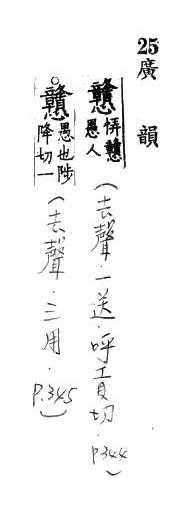 25廣韻
戇悙戇愚人(去聲·一送·呼貢切·P344)
戇愚也陟降切一(去聲·三用·P.345)